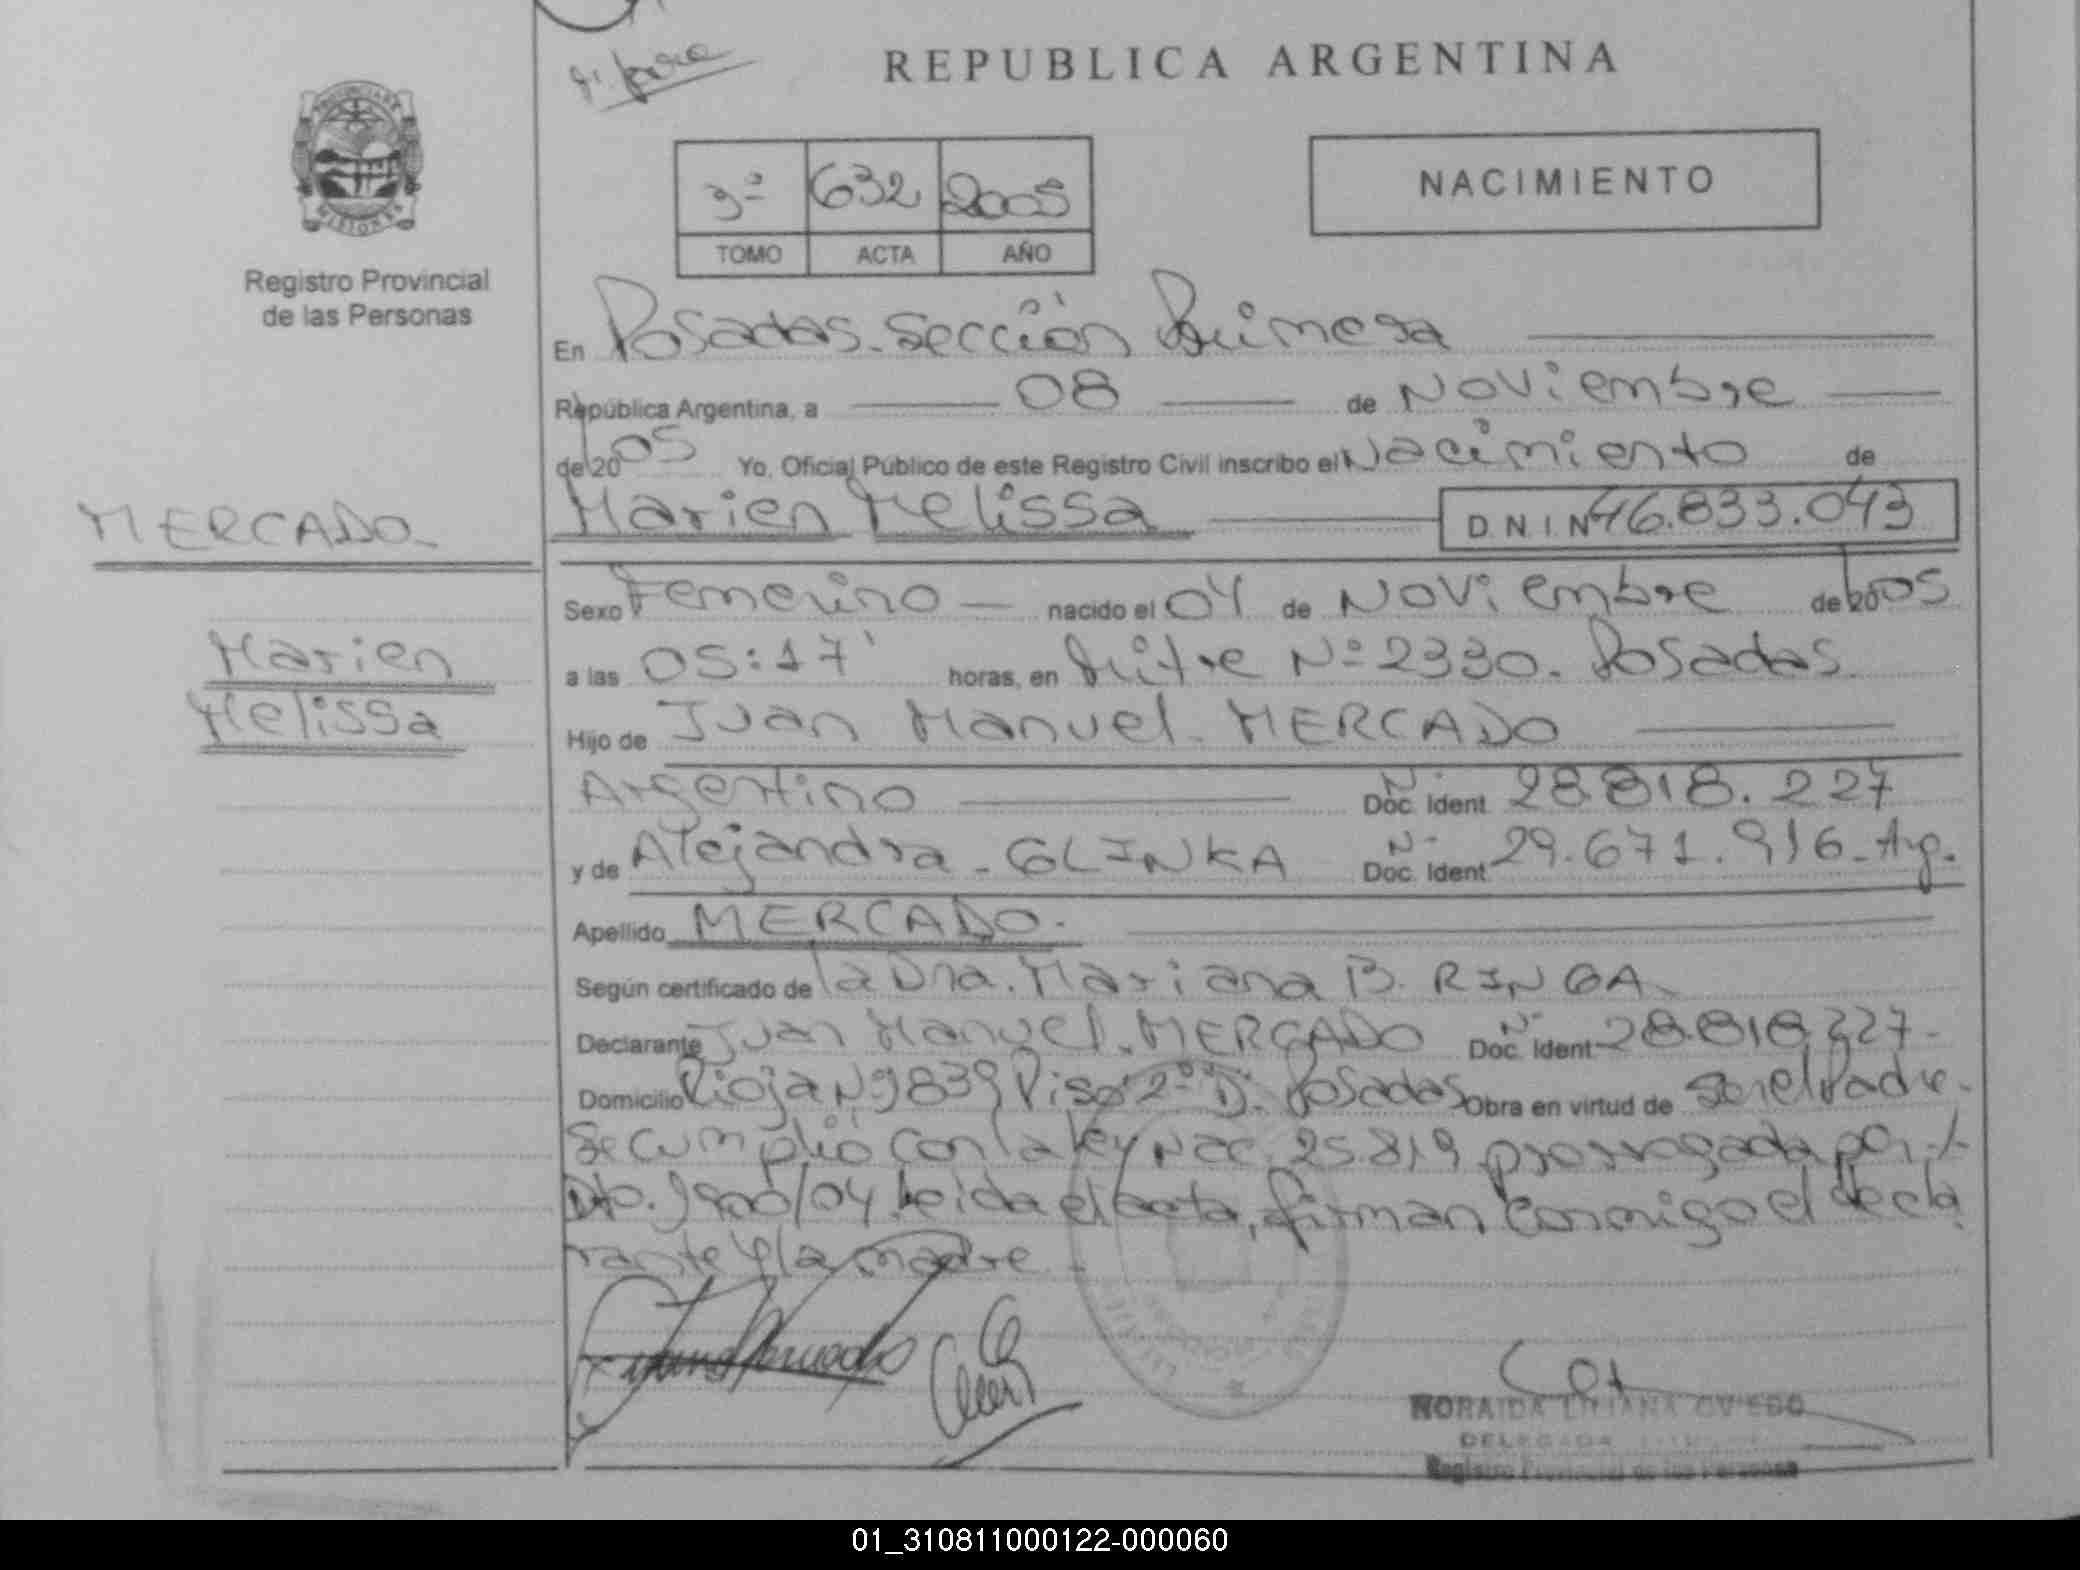 REPUBLICA ARGENTINA
PROVINCIA DE
MISIONES
Registro Provincial
de las Personas
NACIMIENTO
3º 632 2005
TOMO ACTA AÑO
En Posadas. Sección Primera
República Argentina, a 08 de Noviembre
de 2005 Yo, Oficial Público de este Registro Civil inscribo el Nacimiento de
Marien Melissa D.N.I. Nº 46.833.043
MERCADO
Marien
Melissa
Sexo Femenino nacido el 04 de Noviembre de 2005
a las 05:17' horas, en Mitre Nº 2330. Posadas.
Hijo de Juan Manuel MERCADO
Argentino Nº Doc. Ident 28.818.227
y de Alejandra GLINKA Nº Doc. Ident 29.671.916 Arg.
Apellido MERCADO.
Según certificado de la Dra. Mariana B. RINGA.
Declarante Juan Manuel MERCADO Nº Doc. Ident 28.818.227
Domicilio Rioja Nº 839 Piso 2º D. Posadas Obra en virtud de ser el Padre.
Se cumplió con la ley Nac. 25.819 prorrogada por
Dto. 1900/04 leida el acta, firman conmigo el decla
rante y la madre
NORAIDA LILIANA OVIEDO
DELEGADA
Registro Provincial de las Personas
01_310811000122-000060